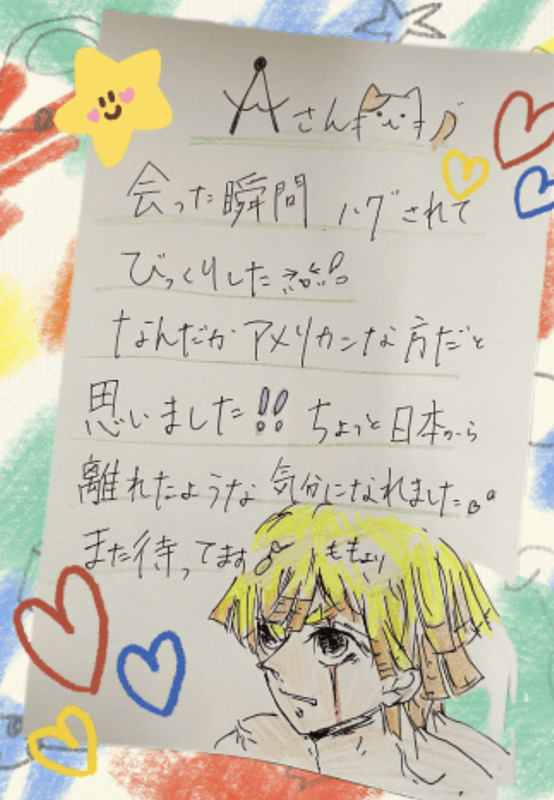 Aさん
会った瞬間 ハグされて
びっくりした
なんだか アメリカンな方だと
思いました!! ちょっと日本から
離れたような気分になれました。
また待ってます♪ ももより